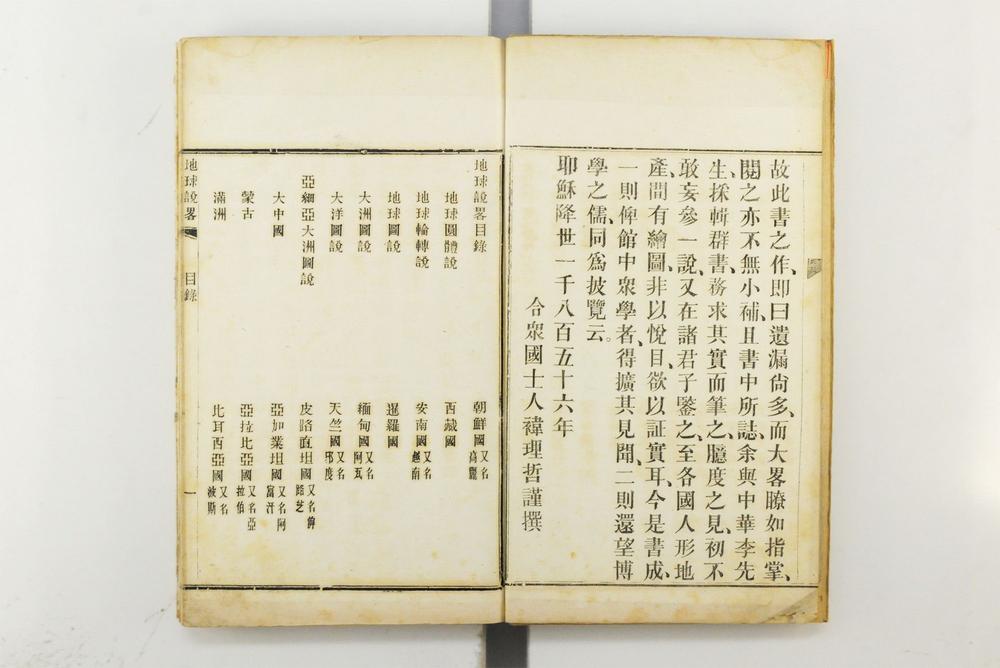 故此書之作、即曰遺漏尙多、而大畧瞭如指掌、
閱之亦不無小補、且書中所誌、余與中華李先
生、採輯群書、務求其實而筆之、臆度之見、初不
敢妄參一說、又在諸君子鑒之、至各國人形地
產、間有繪圖、非以悅目、欲以証實耳、今是書成、
一則俾館中衆學者、得擴其見聞、二則還望博
學之儒、同爲披覽云。
耶穌降世一千八百五十六年
合衆國士人褘理哲謹撰
地球說畧目錄
地球圓體說
地球輪轉說
地球圖說
大洲圖說
大洋圖說
亞細亞大洲圖說
大中國
蒙古
滿洲
朝鮮國又名高麗
西藏國
安南國又名越南
暹羅國
緬甸國又名阿瓦
天竺國又名印度
皮路直坦國又名俾路芝
亞加業坦國又名阿富汗
亞拉比亞國又名亞拉伯
比耳西亞國又名波斯
地球說畧 目錄 一